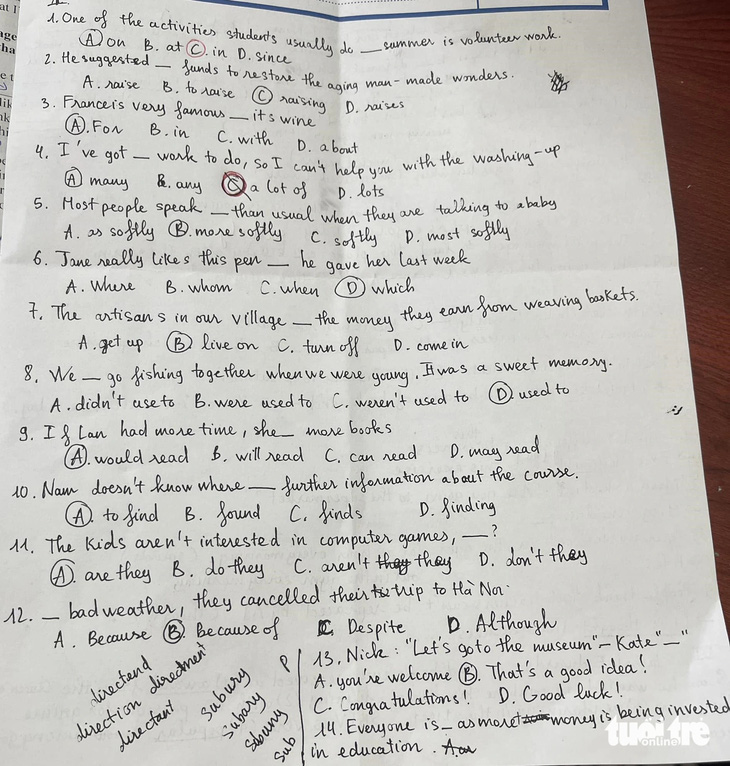 1. One of the activities students usually do __ summer is volunteer work.
A. on B. at C. in D. since
2. He suggested __ funds to restore the aging man-made wonders.
A. raise B. to raise C. raising D. raises
3. France is very famous __ its wine
A. For B. in C. with D. about
4. I've got __ work to do, so I can't help you with the washing-up
A. many B. any C. a lot of D. lots
5. Most people speak __ than usual when they are talking to a baby
A. as softly B. more softly C. softly D. most softly
6. Jane really likes this pen __ he gave her last week
A. Where B. whom C. when D. which
7. The artisans in our village __ the money they earn from weaving baskets.
A. get up B. live on C. turn off D. come in
8. We __ go fishing together when we were young. It was a sweet memory.
A. didn't use to B. were used to C. weren't used to D. used to
9. If Lan had more time, she __ more books
A. would read B. will read C. can read D. may read
10. Nam doesn't know where __ further information about the course.
A. to find B. found C. finds D. finding
11. The kids aren't interested in computer games, __?
A. are they B. do they C. aren't they they D. don't they
12. __ bad weather, they cancelled their trip to Hà Nội.
A. Because B. because of C. Despite D. Although
directand
direction directment
directant
subury
subury
sub
P
13. Nick: "Let's go to the museum" - Kate "__"
A. you're welcome B. That's a good idea!
C. Congratulations! D. Good luck!
14. Everyone is __ as more money is being invested
in education. A.
tuổi trẻ
online